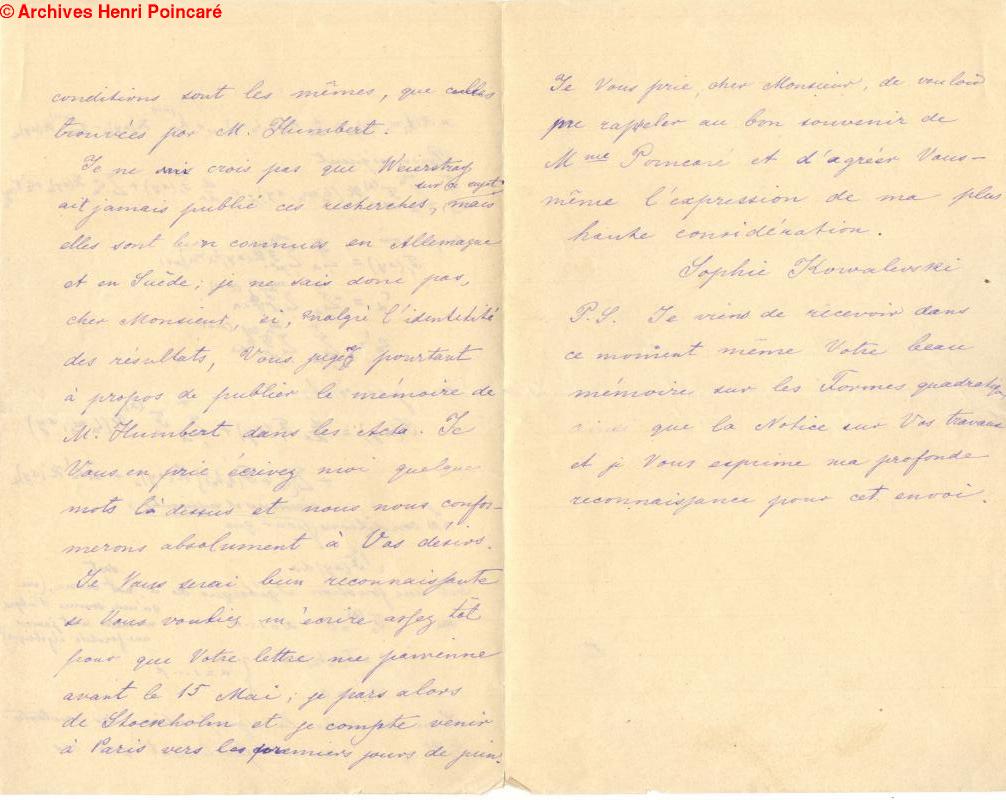 © Archives Henri Poincaré
conditions sont les mêmes, que celles
trouvées par M. Humbert.
Je ne crois pas que Weierstraß
sur ce sujet
ait jamais publié ces recherches, mais
elles sont bien connues en Allemagne
et en Suède; je ne sais donc pas,
cher Monsieur, si, malgré l'identitité
des résultats, Vous jugez pourtant
à propos de publier le mémoire de
M. Humbert dans les Acta. Je
Vous en prie écrivez moi quelques
mots là dessus et nous nous confor-
merons absolument à Vos désirs.
Je Vous serai bien reconnaissante
si Vous vouliez m'écrire assez tôt
pour que Votre lettre me parvienne
avant le 15 Mai; je pars alors
de Stockholm et je compte venir
à Paris vers les premiers jours de juin.
Je Vous prie, cher Monsieur, de vouloir
me rappeler au bon souvenir de
Mme Poincaré et d'agréer Vous-
même l'expression de ma plus
haute considération.
Sophie Kowalevski
P.S. Je viens de recevoir dans
ce moment même Votre beau
mémoire sur les Formes quadratiques
ainsi que la Notice sur Vos travaux
et je Vous exprime ma profonde
reconnaissance pour cet envoi.